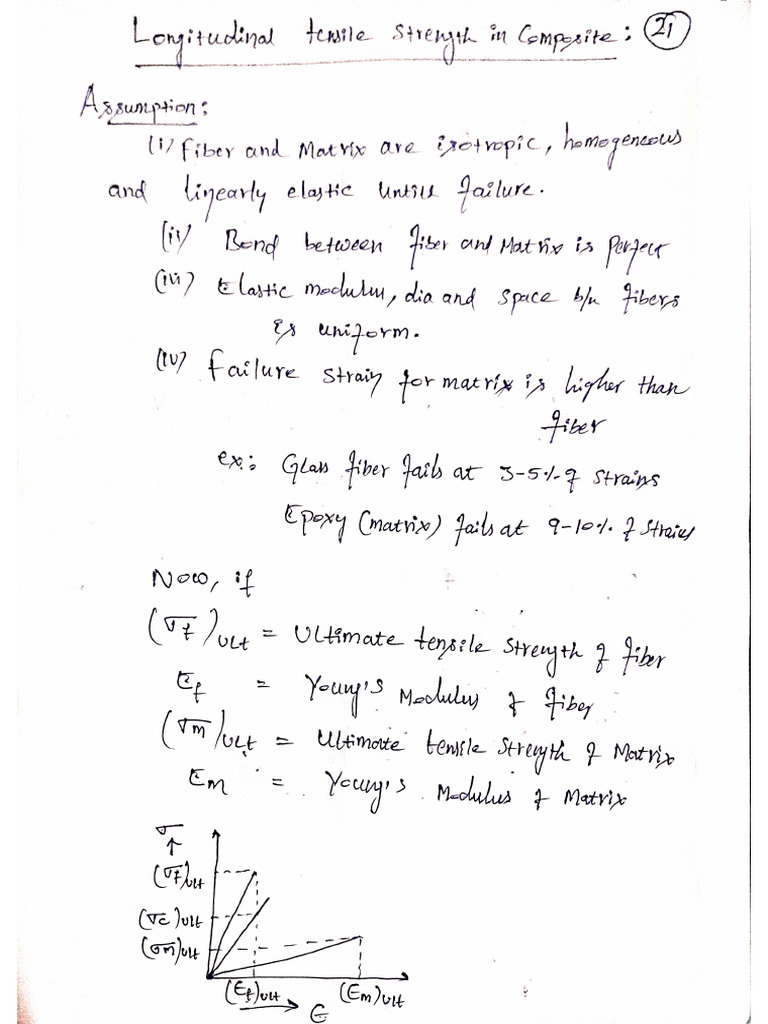 Longitudinal tensile strength in Composite: 21
Assumption:
(i) Fiber and Matrix are isotropic, homogeneous
and linearly elastic untill failure.
(ii) Bond between fiber and Matrix is perfect
(iii) Elastic modulus, dia and space b/w fibers
is uniform.
(iv) Failure strain for matrix is higher than
fiber
ex: Glass fiber fails at 3-5% of strains
Epoxy (matrix) fails at 9-10% of strains
Now, if
(σf)ult = Ultimate tensile strength of fiber
Ef = Young's Modulus of fiber
(σm)ult = Ultimate tensile strength of Matrix
Em = Young's Modulus of Matrix
σ
↑
(σf)ult
(σc)ult
(σm)ult
(Ef)ult (Em)ult
→ ϵ